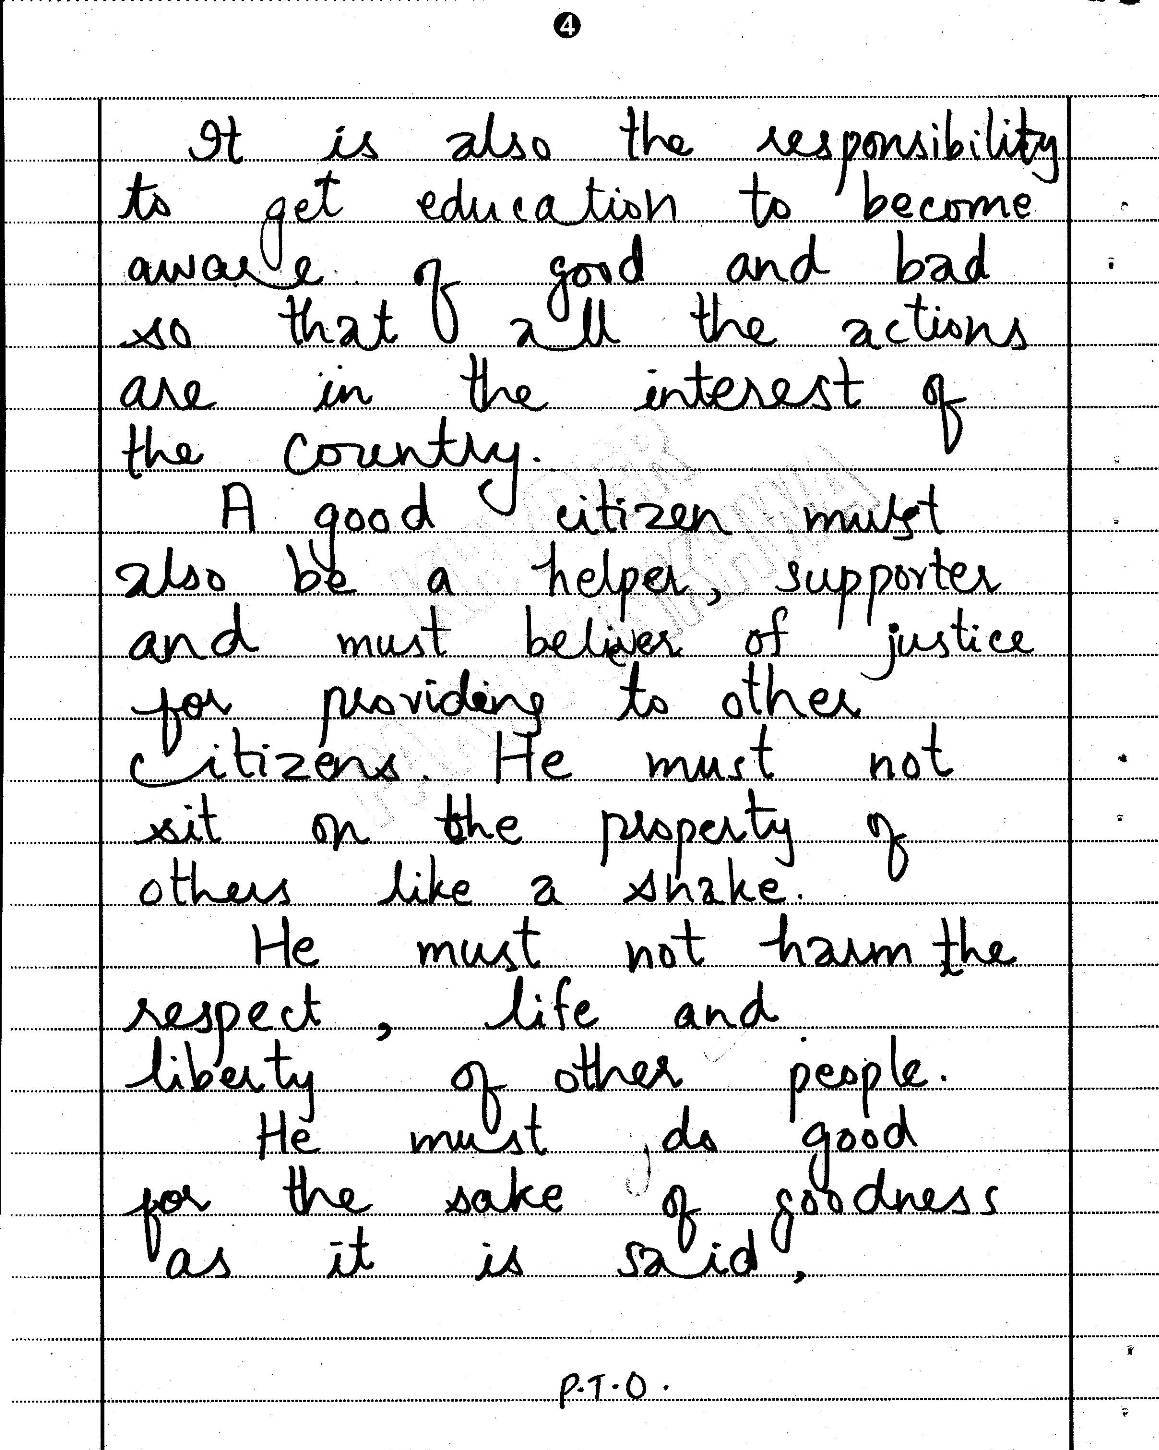 4
It is also the responsibility
to get education to become
aware of good and bad
so that all the actions
are in the interest of
the country.
A good citizen must
also be a helper, supporter
and must beliver of justice
for providing to other
citizens. He must not
sit on the property of
others like a snake.
He must not harm the
respect, life and
liberty of other people.
He must do good
for the sake of goodness
as it is said,
P.T.O.